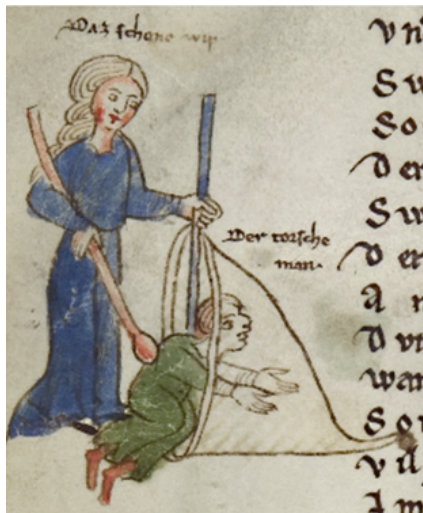 Daz schone wip
Der torsche
man·
vn
Sw
So
Der
Sw
Der
A
Dvr
wan
So
vil